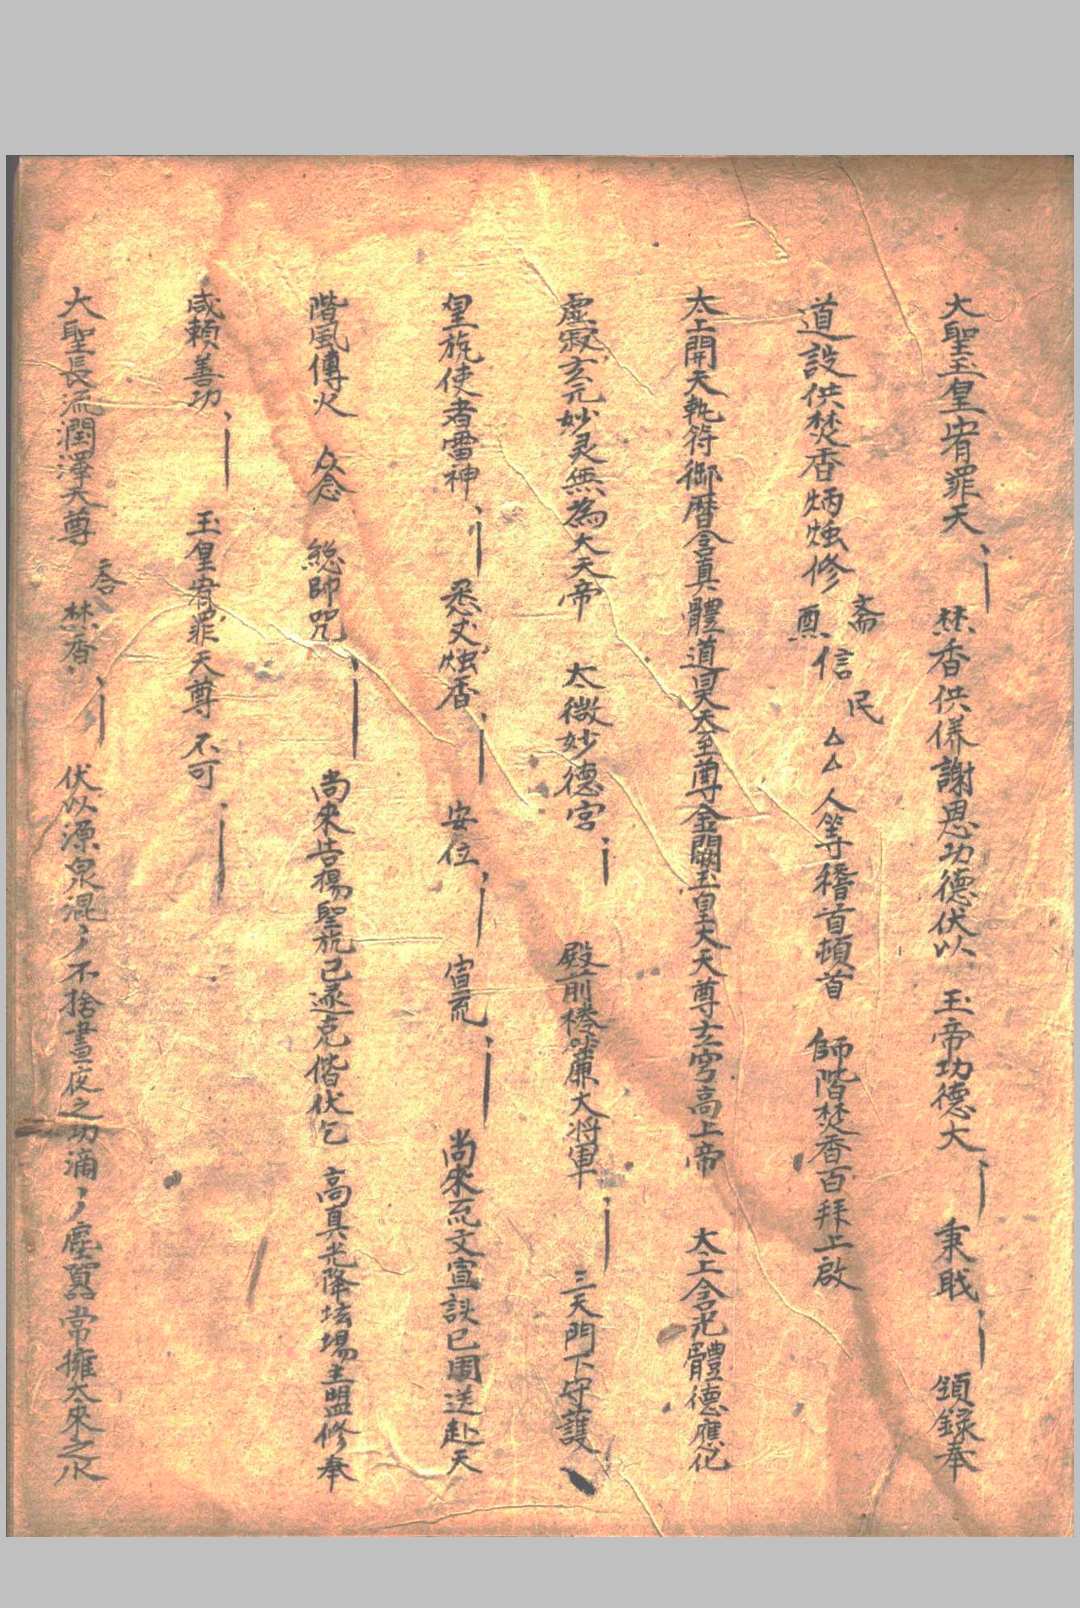 大聖玉皇宥罪天、｜ 焚香供養謝恩功德伏以 玉帝功德大、｜ 秉戝、｜ 領錄奉
道設供焚香炳烛修齋醮信民△△人等稽首頓首 師階焚香百拜上啟
太上開天執符御曆含真體道昊天至尊金闕玉皇大天尊玄穹高上帝 太上含光體德應化
虛寂玄元妙灵無為大天帝 太微妙德宮、｜ 殿前捲簾大将軍、｜ 三天門下守護
皇旒使者雷神、｜ 烛香、｜ 安位、｜ 宣䟽、｜ 尚來䟽文宣讀已周送赴天
階風傳火 众念 總帥咒、｜ 尚來告揚聖旒已遂克偕伏乞 高真光降坛場主盟修奉
咸賴善功、｜ 玉皇宥罪天尊 不可、｜
大聖長流潤澤天尊 吞 焚香、｜ 伏以源泉混〻不捨晝夜之功滴〻塵嚣常擁太來之水